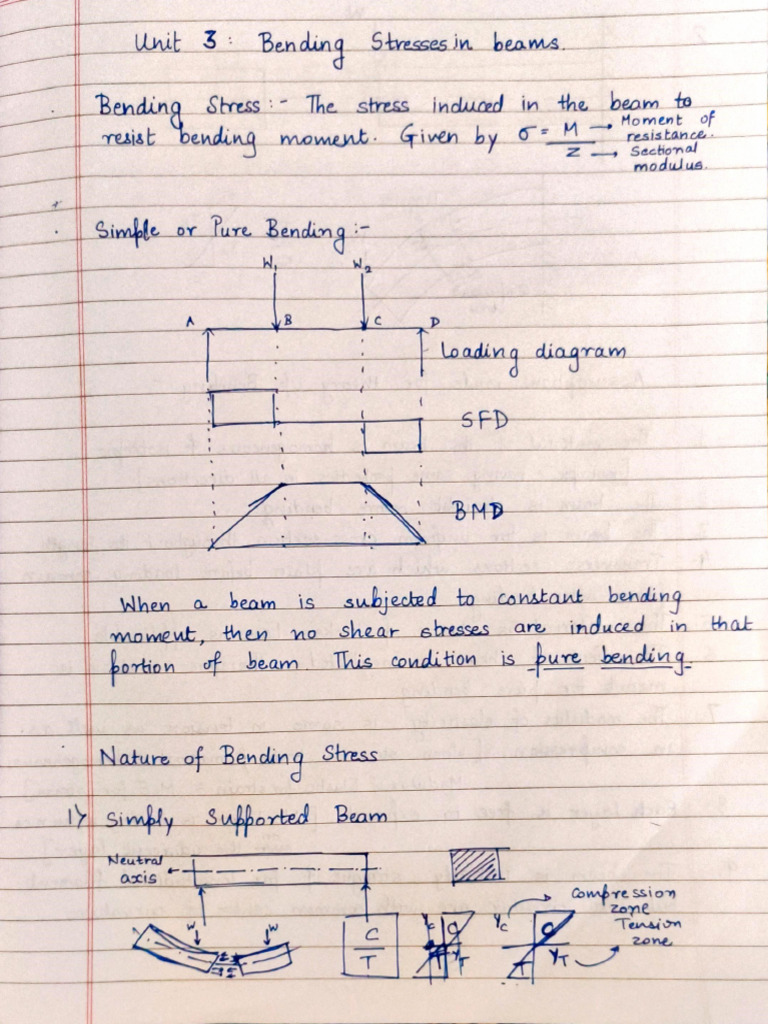 Unit 3: Bending Stresses in beams.
Bending Stress:- The stress induced in the beam to
resist bending moment. Given by σ = M/Z
M → Moment of
resistance.
Z → Sectional
modulus.
Simple or Pure Bending:-
W₁ W₂
A B C D
Loading diagram
SFD
BMD
When a beam is subjected to constant bending
moment, then no shear stresses are induced in that
portion of beam This condition is pure bending.
Nature of Bending Stress
1) Simply Supported Beam
Neutral
axis
Compression
zone
Tension
zone
W W
C
T
Yc C
T YT
Yc C
T YT